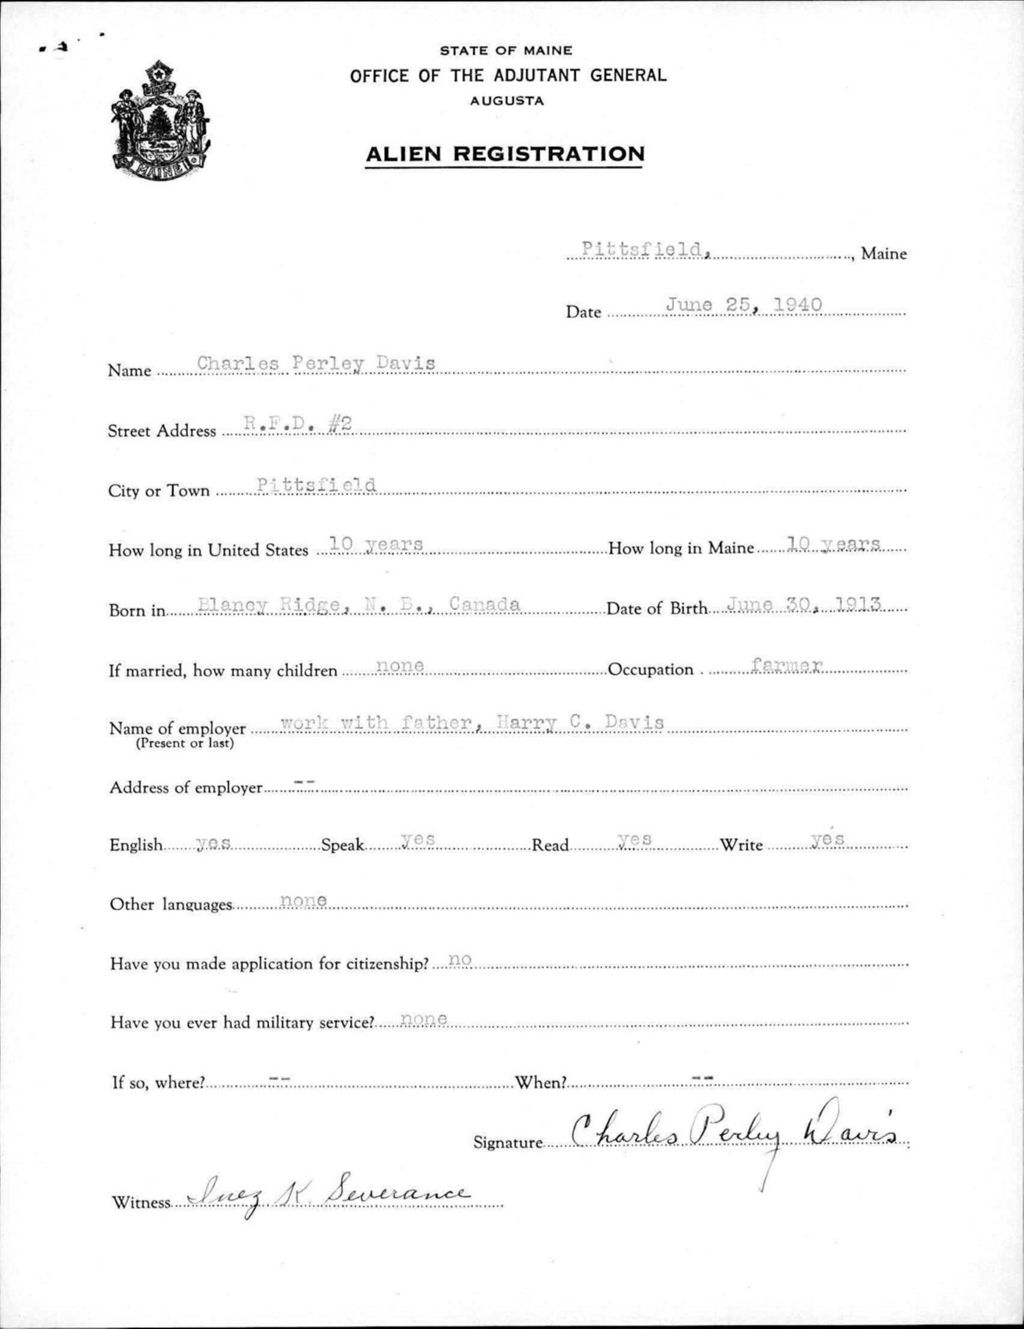 STATE OF MAINE
OFFICE OF THE ADJUTANT GENERAL
AUGUSTA
MAINE
ALIEN REGISTRATION
Pittsfield, , Maine
Date June 25, 1940
Name Charles Perley Davis
Street Address R.F.D. #2
City or Town Pittsfield
How long in United States 10 years How long in Maine 10 years
Born in Blaney Ridge, N. B., Canada Date of Birth June 30, 1913
If married, how many children none Occupation farmer
Name of employer work with father, Harry C. Davis
(Present or last)
Address of employer --
English yes Speak yes Read yes Write yes
Other languages none
Have you made application for citizenship? no
Have you ever had military service? none
If so, where? -- When? --
Signature Charles Perley Davis
Witness Inez K. Severance